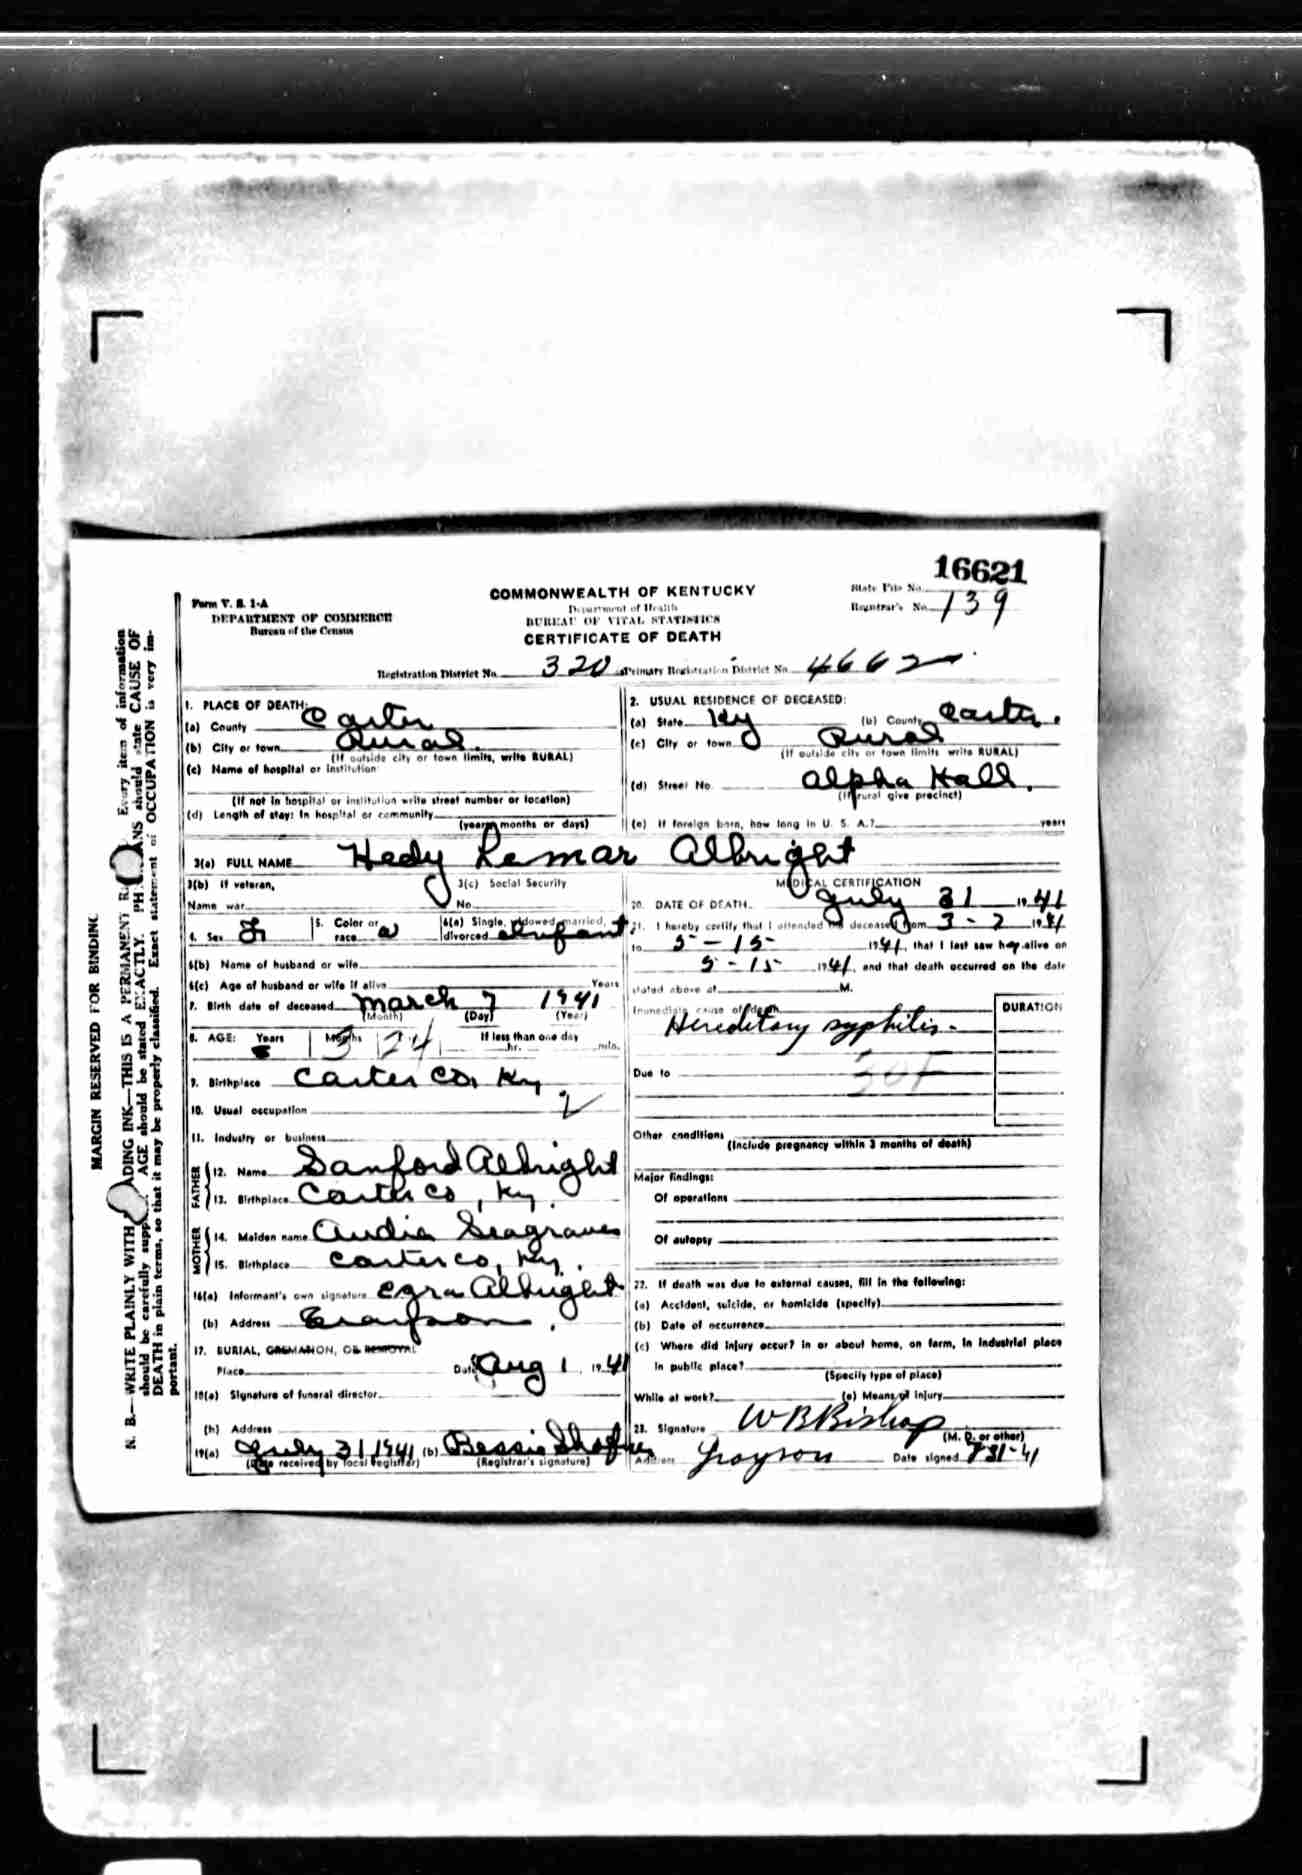 16621
Form V. S. 1-A
DEPARTMENT OF COMMERCE
Bureau of the Census
COMMONWEALTH OF KENTUCKY
Department of Health
BUREAU OF VITAL STATISTICS
CERTIFICATE OF DEATH
State File No.
Registrar's No. 139
Registration District No. 320 Primary Registration District No. 4662
MARGIN RESERVED FOR BINDING
N. B.—WRITE PLAINLY WITH ADING INK—THIS IS A PERMANENT Every item of information
should be carefully AGE should be stated EXACTLY. should state CAUSE OF
DEATH in plain terms, so that it may be properly classified. Exact statement of OCCUPATION is very im-
portant.
1. PLACE OF DEATH:
(a) County Carter
(b) City or town Rural
(If outside city or town limits, write RURAL)
(c) Name of hospital or institution:
(If not in hospital or institution write street number or location)
(d) Length of stay: In hospital or community
(years, months or days)
2. USUAL RESIDENCE OF DECEASED:
(a) State Ky (b) County Carter.
(c) City or town Rural
(If outside city or town limits write RURAL)
(d) Street No. Alpha Hall.
(If rural give precinct)
(e) If foreign born, how long in U. S. A.? years
3(a) FULL NAME Hedy Lemar Albright
3(b) If veteran,
Name war
3(c) Social Security
No.
4. Sex F 5. Color or race 6(a) Single, widowed, married, divorced infant
6(b) Name of husband or wife
6(c) Age of husband or wife if alive Years
7. Birth date of deceased March 7 1941
(Month) (Day) (Year)
8. AGE: Years Months Days If less than one day
3 24 hr. min.
9. Birthplace Carter Co, Ky
10. Usual occupation
11. Industry or business
FATHER
12. Name Sanford Albright
13. Birthplace Carter Co, Ky.
MOTHER
14. Maiden name Audia Seagraves
15. Birthplace Carter Co, Ky.
16(a) Informant's own signature Ezra Albright
(b) Address Grayson.
17. BURIAL, CREMATION, OR REMOVAL
Place Date Aug 1, 1941
18(a) Signature of funeral director
(b) Address
19(a) July 31 1941 (b) Bessie
(Date received by local registrar) (Registrar's signature)
MEDICAL CERTIFICATION
20. DATE OF DEATH July 31 1941
21. I hereby certify that I attended the deceased from 3-2 1941
to 5-15- 1941, that I last saw her alive on
5-15 1941, and that death occurred on the date
stated above at M.
Immediate cause of death DURATION
Hereditary syphilis-
Due to
Other conditions
(Include pregnancy within 3 months of death)
Major findings:
Of operations
Of autopsy
22. If death was due to external causes, fill in the following:
(a) Accident, suicide, or homicide (specify)
(b) Date of occurrence
(c) Where did injury occur? In or about home, on farm, in industrial place
in public place?
(Specify type of place)
While at work? (e) Means of injury
23. Signature W B Bishop
(M. D. or other)
Address Grayson Date signed 31-41